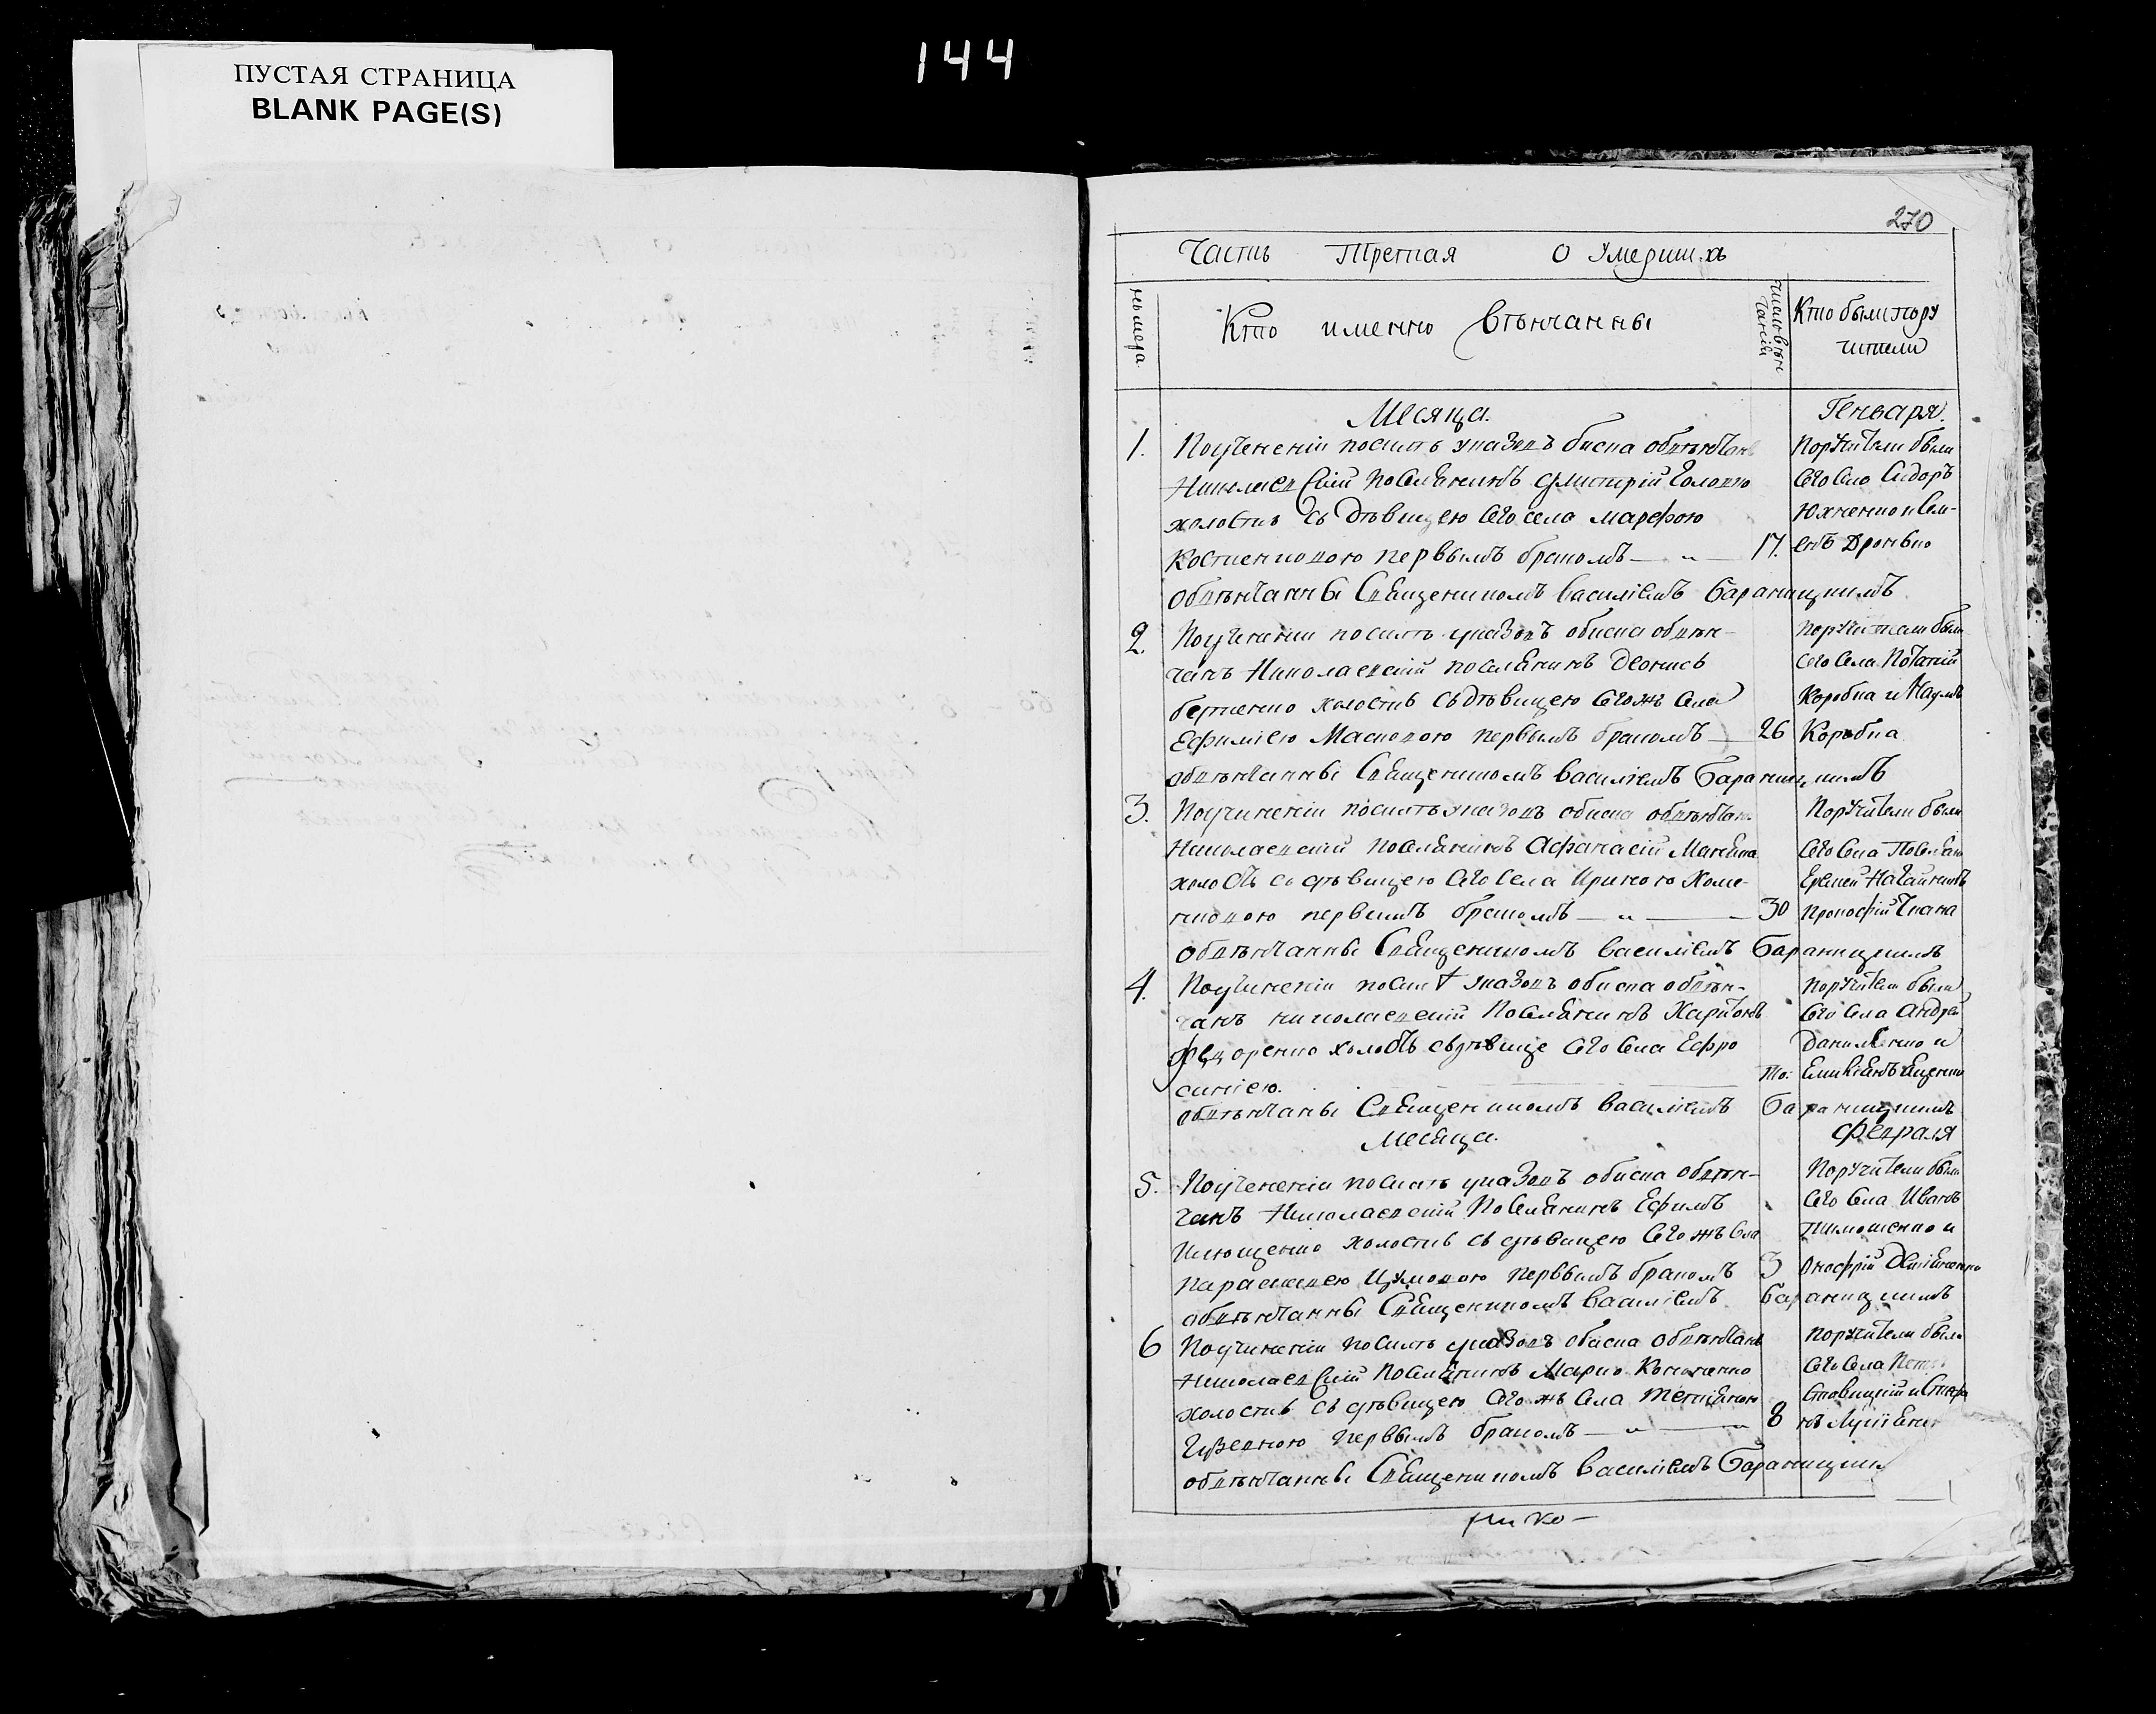 ПУСТАЯ СТРАНИЦА
BLANK PAGE(S)
144
270
Часть Третая О Умерших
нумера
Кто именно Вѣнчанны
число вѣнчания
Кто были пору
чители
Месяца. Генваря
1. Поучененіи посилѣ указовъ обиска обвѣнчанъ
Николаевскій поселянинъ Дмитрій
холостъ съ Дѣвицею сего села Марфою
Костенковою первымъ бракомъ — „ — 17.
Поручители были
сего села Сидоръ
Юхненко и Сем-
енъ
обвѣнчанны Священникомъ Василіемъ Бараницкимъ
2. Поучинении посилѣ указовъ обиска обвѣн-
чанъ Николаевскій поселянинъ Деонисъ
холостъ съ дѣвицею сегожъ села
Ефиміею Масковою первымъ бракомъ — 26
Поручители были
сего села Потапій
Коробка и Наумъ
Коробка
обвѣнчанны Священникомъ Василіемъ Бараницкимъ
3. Поучиненіи посилѣ указовъ обиска обвѣнчанъ
Николаевскій поселянинъ Афанасій
холостъ съ дѣвицею сего села Ириною Хоме-
нковою первымъ бракомъ — „ — 30
Поручители были
сего села Поселяне
Еремей
Прокофій
обвѣнчанны Священникомъ Василіемъ Бараницкимъ
4. Поучиненіи посилѣ указовъ обиска обвѣн-
чанъ николаевскій Поселянинъ Харитонъ
Федоренко холостъ съ дѣвице сего села Ефро
синіею. то:
Поручители были
сего села Андрей
Даниленко и
обвѣнчаны Священникомъ Василіемъ Бараницкимъ
Месяца. Февраля
5. Поучененіи посилѣ указовъ обиска обвѣн-
чанъ Николаевскій Поселянинъ Ефимъ
холостъ съ дѣвицею сегожъ села
Параскевею первымъ бракомъ 3
Поручители были
сего села Иванъ
Тимошенко и
Онофрій
обвѣнчанны Священникомъ Василіемъ Бараницкимъ
6 Поучиненіи посилѣ указовъ обиска обвѣнчанъ
Николаевскій Поселянинъ Марко Кононенко
холостъ съ дѣвицею сегожъ села
первымъ бракомъ — „ — 8
Поручители были
сего села
обвѣнчанны Священникомъ Василіемъ Бараницким